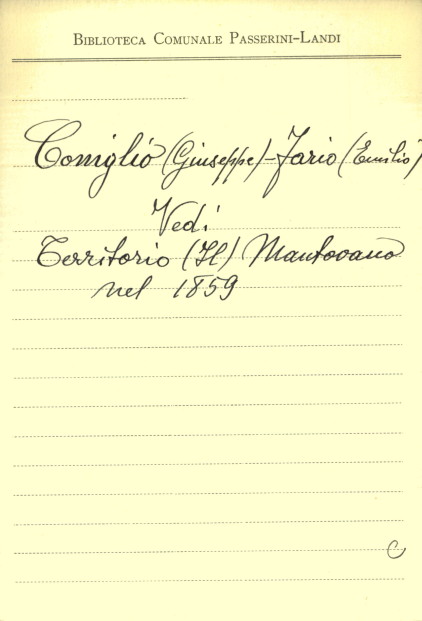 BIBLIOTECA COMUNALE PASSERINI-LANDI
Coniglio (Giuseppe)-Fario (Emilio)
Vedi
Territorio (Il) Mantovano
nel 1859
C